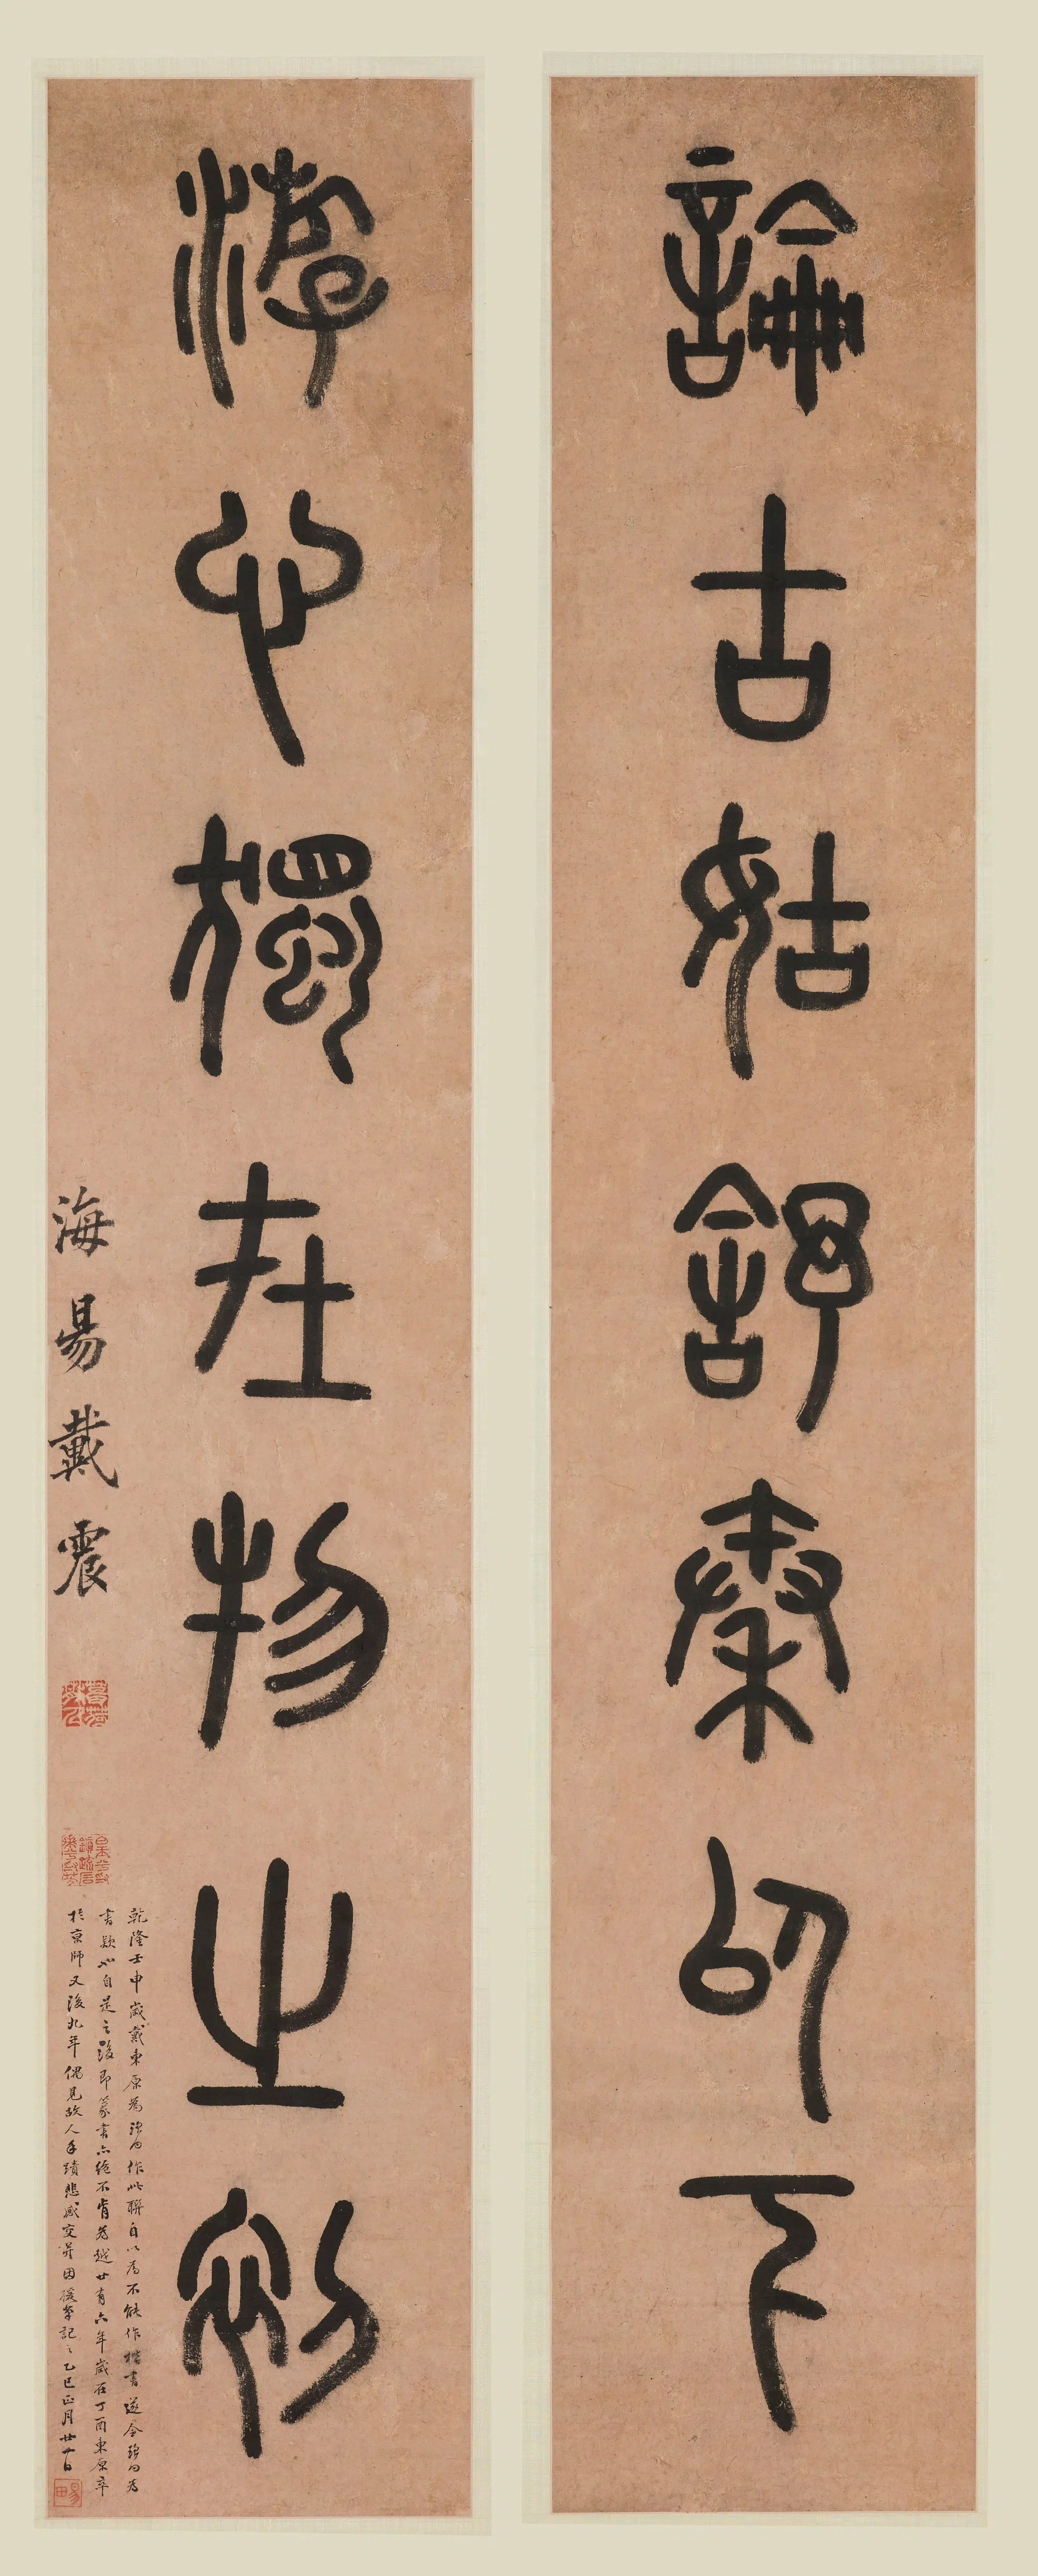 論古姑舒秦以下
游心獨在物之初
海昜戴震
乾隆壬申歲戴東原為瑤田作此聯自以為不能作楷書遂令瑤田為
書款也自是之後即篆書亦絕不肯為越廿有六年歲在丁酉東原卒
於京師又後九年偶見故人手蹟悲感交并因援筆記之乙巳正月廿一日
易田